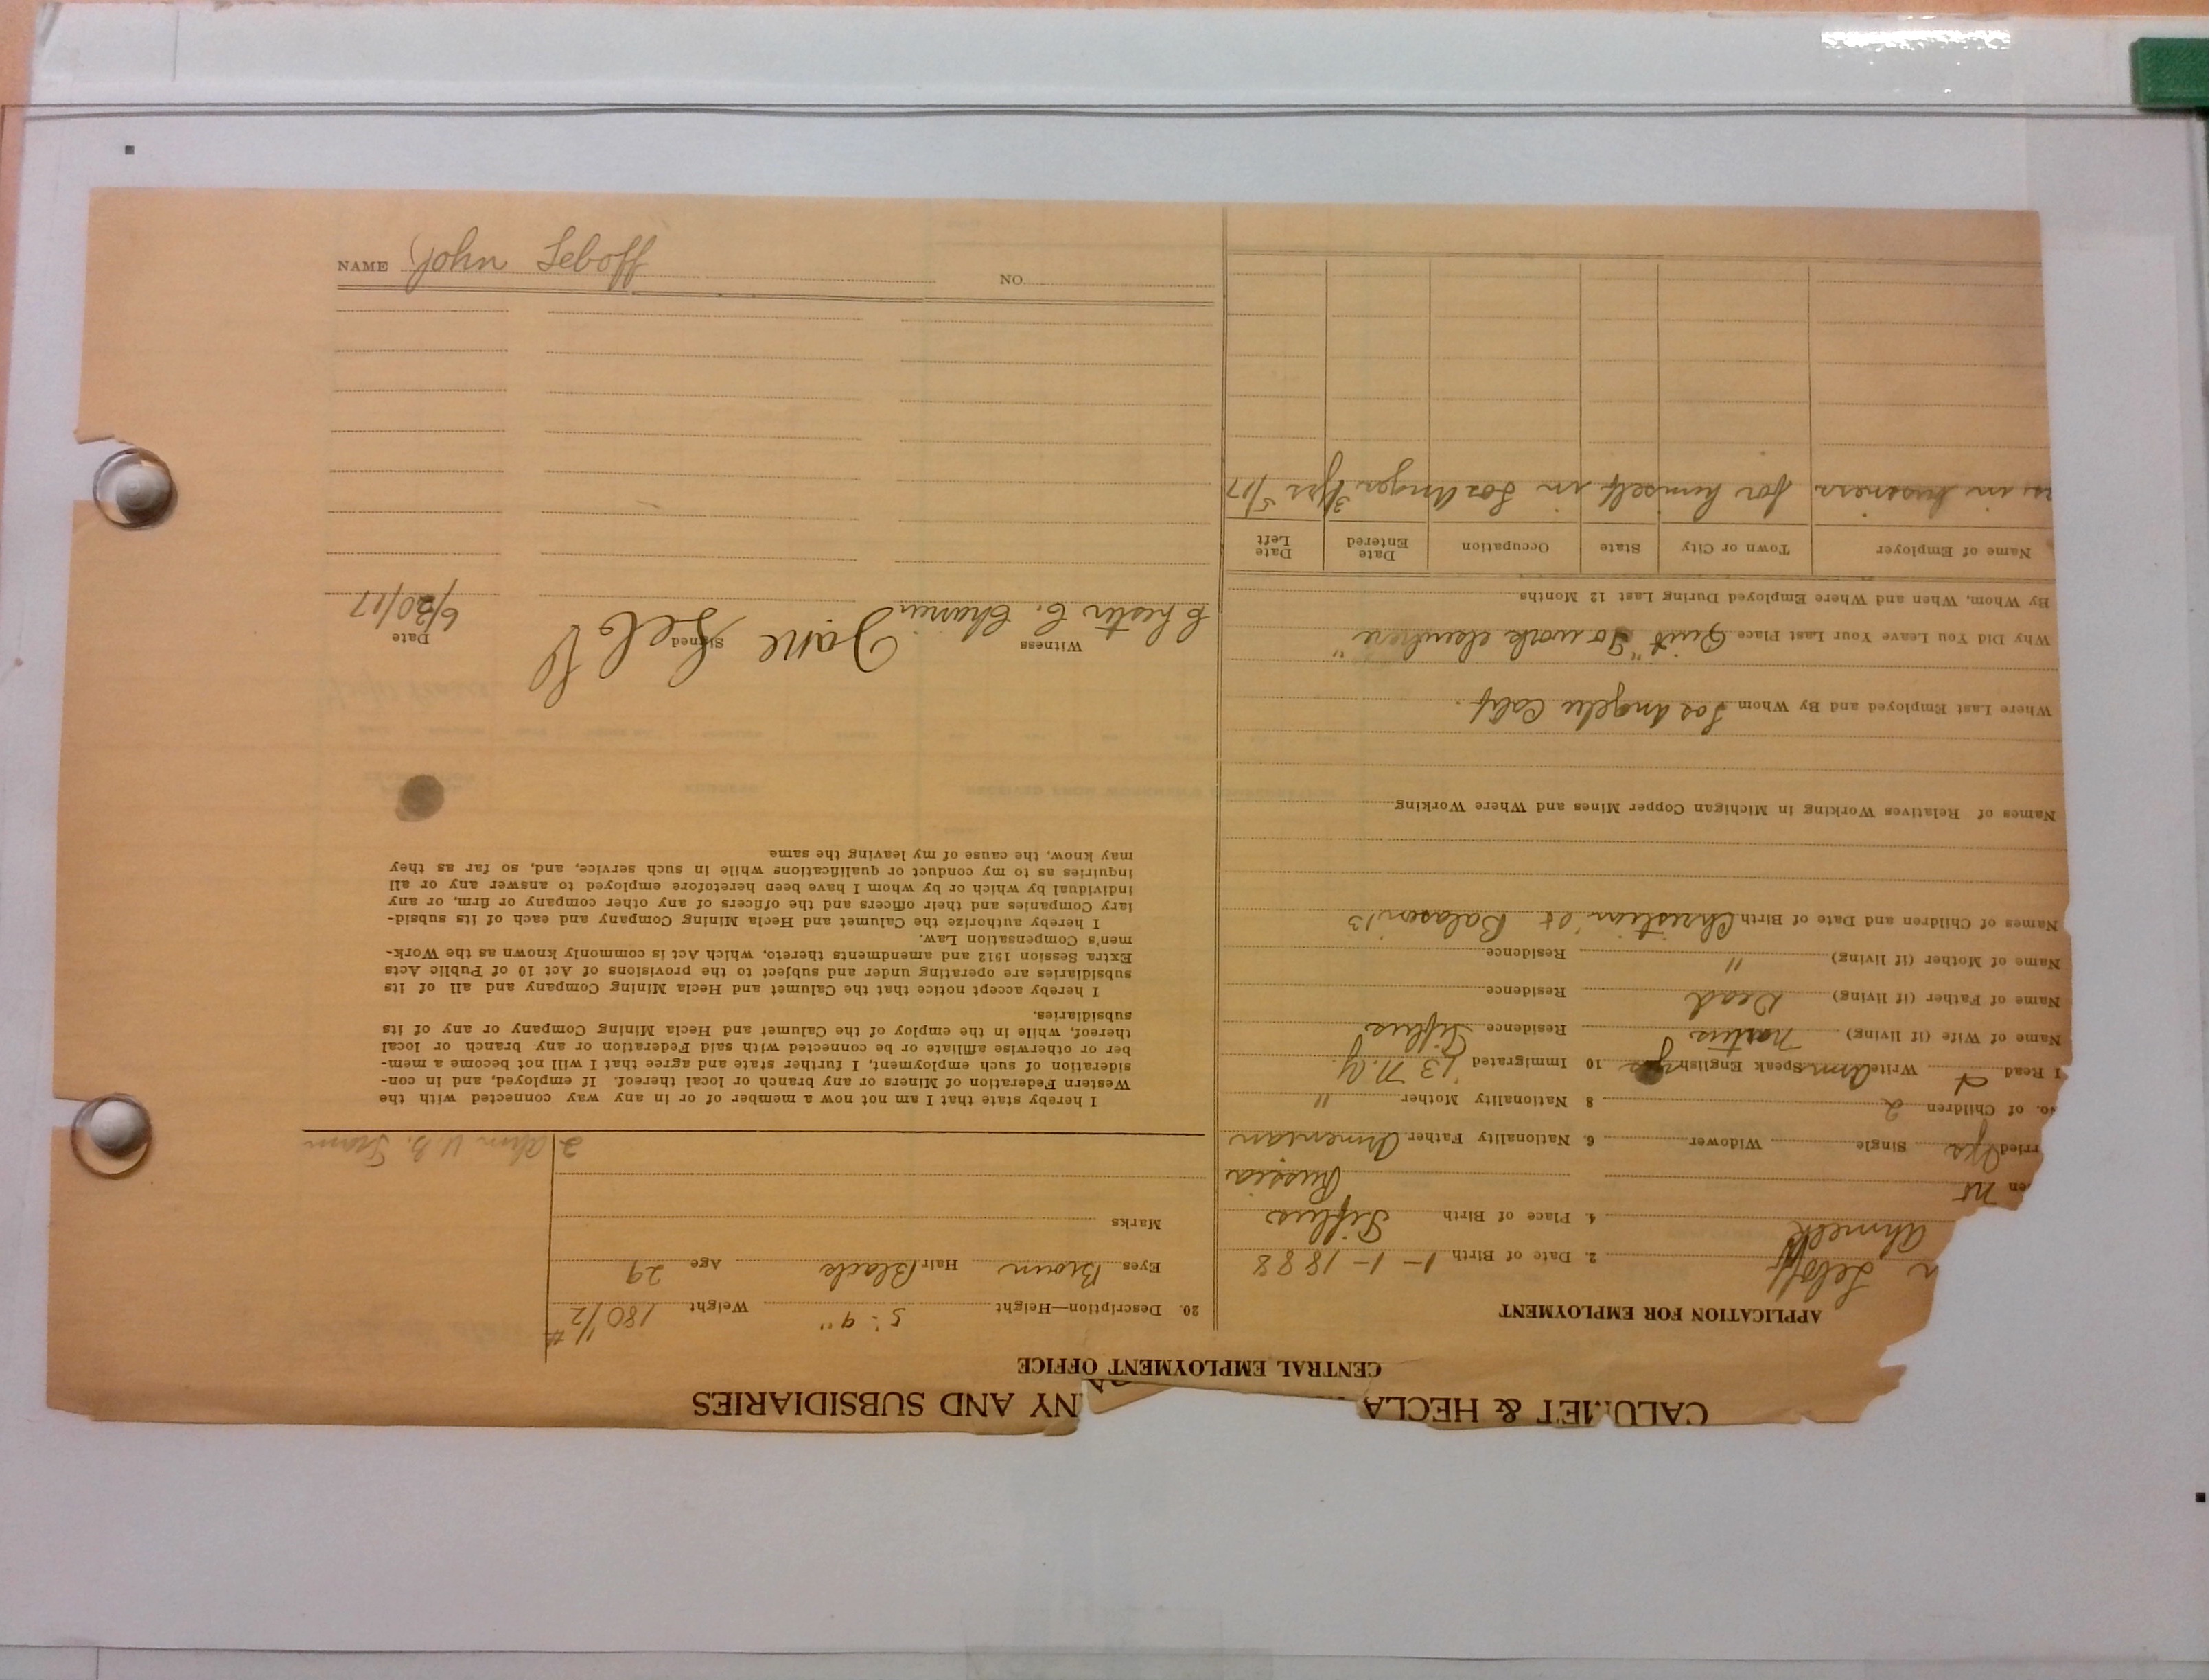 CALUMET & HECLA
NY AND SUBSIDIARIES
CENTRAL EMPLOYMENT OFFICE
APPLICATION FOR EMPLOYMENT
n Seboff 2. Date of Birth 1-1-1888
Ahmeek 4. Place of Birth Tiflis
Russia
rried yes Single Widower 6. Nationality Father Armenian
No. of Children 2 8 Nationality Mother "
I Read Write Arm. Speak English yes 10 Immigrated '13 N.Y.
Name of Wife (if living) Residence Tiflis
Name of Father (if living) Dead Residence
Name of Mother (if living) " Residence
Names of Children and Date of Birth Christian
Names of Relatives Working in Michigan Copper Mines and Where Working
Where Last Employed and By Whom Los Angeles Calif.
Why Did You Leave Your Last Place Quit "To work elsewhere"
By Whom, When and Where Employed During Last 12 Months
Name of Employer Town or City State Occupation Date Entered Date Left
in business for himself in Los Angeles 3 yrs 5/17
20. Description—Height 5' 9" Weight 180 1/2 #
Eyes Brown Hair Black Age 29
Marks
I hereby state that I am not now a member of or in any way connected with the
Western Federation of Miners or any branch or local thereof. If employed, and in con-
sideration of such employment, I further state and agree that I will not become a mem-
ber or otherwise affiliate or be connected with said Federation or any branch or local
thereof, while in the employ of the Calumet and Hecla Mining Company or any of its
subsidiaries.
I hereby accept notice that the Calumet and Hecla Mining Company and all of its
subsidiaries are operating under and subject to the provisions of Act 10 of Public Acts
Extra Session 1912 and amendments thereto, which Act is commonly known as the Work-
men's Compensation Law.
I hereby authorize the Calumet and Hecla Mining Company and each of its subsid-
iary Companies and their officers and the officers of any other company or firm, or any
individual by which or by whom I have been heretofore employed to answer any or all
inquiries as to my conduct or qualifications while in such service, and, so far as they
may know, the cause of my leaving the same
Witness Signed Date
Chester C. 6/20/17
NAME John Seboff NO.